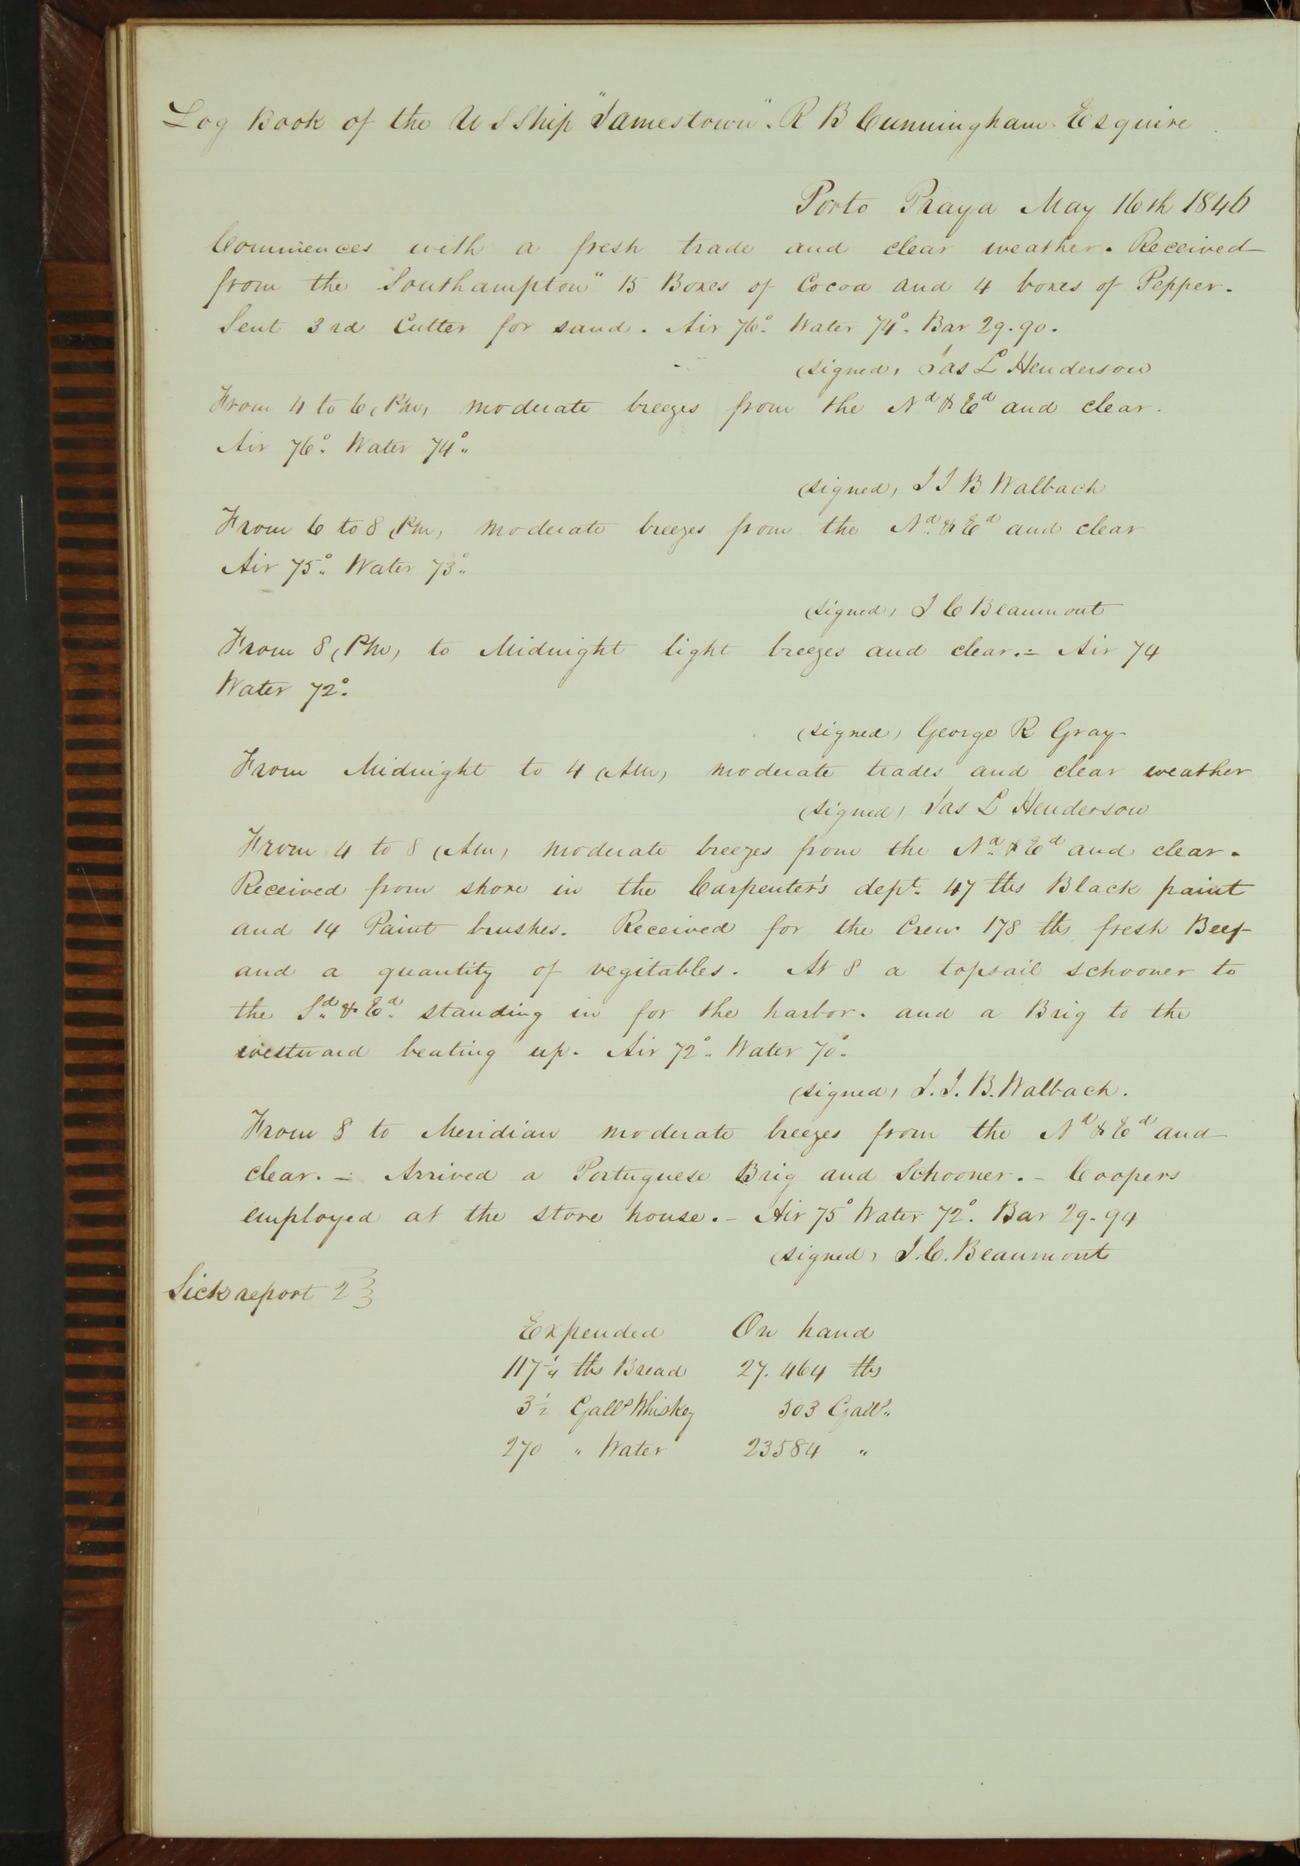 Log Book of the U S Ship "Jamestown". R B Cunningham Esquire
Porto Praya May 16th 1846
Commences with a fresh trade and clear weather. Received
from the "Southampton" 15 Boxes of Cocoa and 4 boxes of Pepper.
Sent 3rd Cutter for sand. Air 76°. Water 74°. Bar 29.90.
(signed) Jas L Henderson
From 4 to 6 (Pm) moderate breezes from the Nd & Ed and clear.
Air 76°. Water 74°.
(signed) J J B Walbach
From 6 to 8 (Pm) moderate breezes from the Nd & Ed and clear
Air 75°. Water 73°.
(signed) J C Beaumont
From 8 (Pm) to Midnight light breezes and clear.- Air 74
Water 72°.
(signed) George R Gray
From Midnight to 4 (Am) moderate trades and clear weather
(signed) Jas L Henderson
From 4 to 8 (Am) moderate breezes from the Nd & Ed and clear.
Received from shore in the Carpenter's dept. 47 lbs Black paint
and 14 Paint brushes. Received for the Crew 178 lbs fresh Beef
and a quantity of vegitables. At 8 a topsail schooner to
the Sd & Ed standing in for the harbor. and a Brig to the
westward beating up. Air 72°. Water 70°.
(signed) J. J. B. Walbach.
From 8 to Meridian moderate breezes from the Nd & Ed and
clear. - Arrived a Portuguese Brig and Schooner. - Coopers
employed at the store house. - Air 75° Water 72°. Bar 29.94
(signed) J. C. Beaumont
Sick report 2
Expended On hand
117 1/4 lbs Bread 27.464 lbs
3 1/2 Galls Whiskey 303 Galls
270 " Water 23584 "